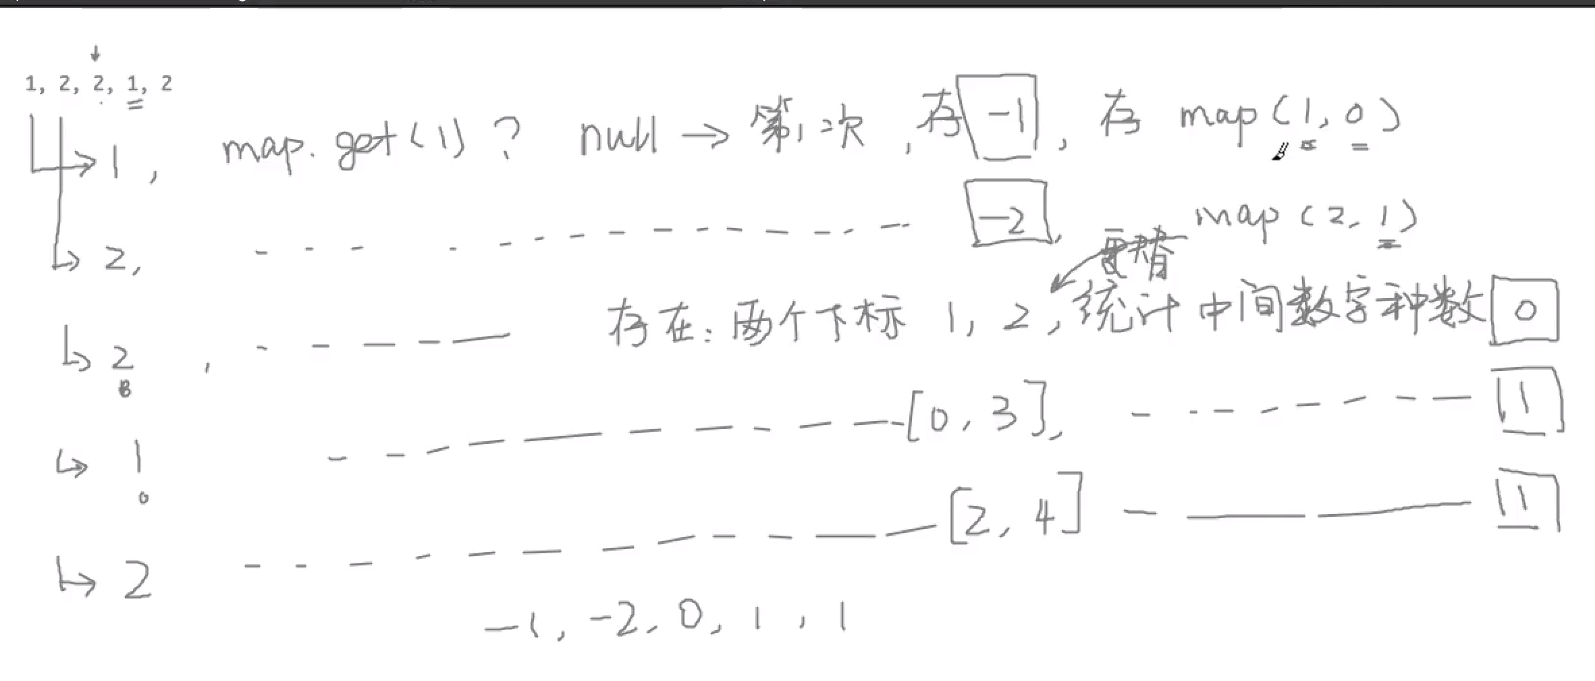 1, 2, 2, 1, 2
1, map.get(1)? null → 第1次, 存 -1, 存 map(1, 0)
2, -2, map(2, 1)
更替
2, 存在: 两个下标 1, 2, 统计中间数字种数 0
1 [0, 3], 1
0
2 [2, 4] 1
-1, -2, 0, 1, 1